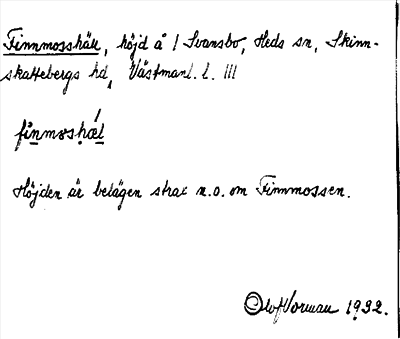 Finnmosshäll, höjd å / Svansbo, Heds sn, Skinn-
skattebergs hd, Västmanl. l. III
finmoshæl
Höjden är belägen strax n.o. om Finnmossen.
Olof Vorman 1932.